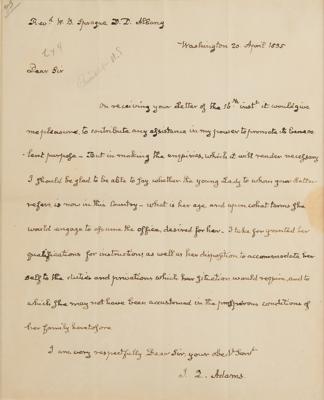 Revd. W. B. Sprague D. D. Albany
Washington 20 April 1835
Dear Sir
On receiving your Letter of the 16th inst it would give
me pleasure, to contribute any assistance in my power to promote its benevo-
lent purpose - But in making the enquiries, which it will render necessary
I should be glad to be able to say whether the young Lady to whom your Letter
refers is now in this Country - what is her age and upon what terms she
would engage to assume the office, desired for her. I take for granted her
qualifications for instruction; as well as her disposition to accommodate her
self to the duties and privations which her situation would require, and to
which she may not have been accustomed in the prosperous conditions of
her family heretofore
I am very respectfully Dear Sir, your obedt Servt
J. Q. Adams.